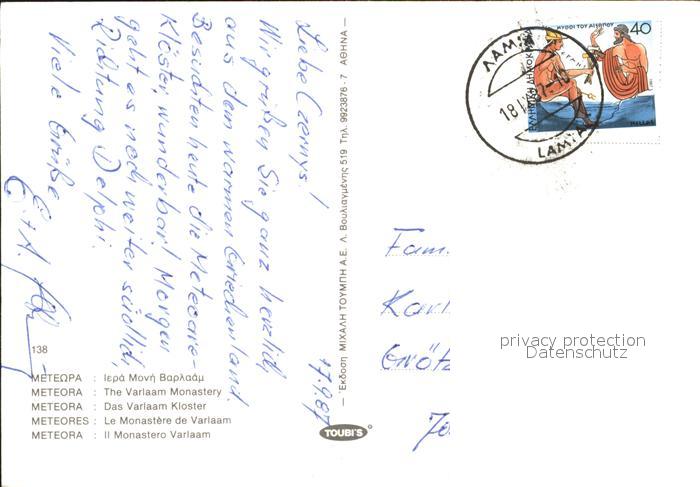 Liebe Czernys!
Wir grüßen Sie ganz herzlich
aus dem warmen Griechenland.
Besichten heute die Meteora-
Klöster wunderbar! Morgen
geht es noch weiter südlich,
Richtung Delphi.
Viele Grüße
E. + A.
17.9.87
138
ΜΕΤΕΩΡΑ : Ιερά Μονή Βαρλαάμ
METEORA : The Varlaam Monastery
METEORA : Das Varlaam Kloster
METEORES : Le Monastère de Varlaam
METEORA : Il Monastero Varlaam
— Έκδοση ΜΙΧΑΛΗ ΤΟΥΜΠΗ Α.Ε. Λ. Βουλιαγμένης 519 Τηλ. 9923876 - 7 ΑΘΗΝΑ —
TOUBI'S
ΜΥΘΟΙ ΤΟΥ ΑΙΣΩΠΟΥ
40
ΕΛΛΗΝΙΚΗ ΔΗΜΟΚΡΑ
HELLAS
ΛΑΜ
18
LAMIA
Fam.
Karl
Grötz
privacy protection
Datenschutz